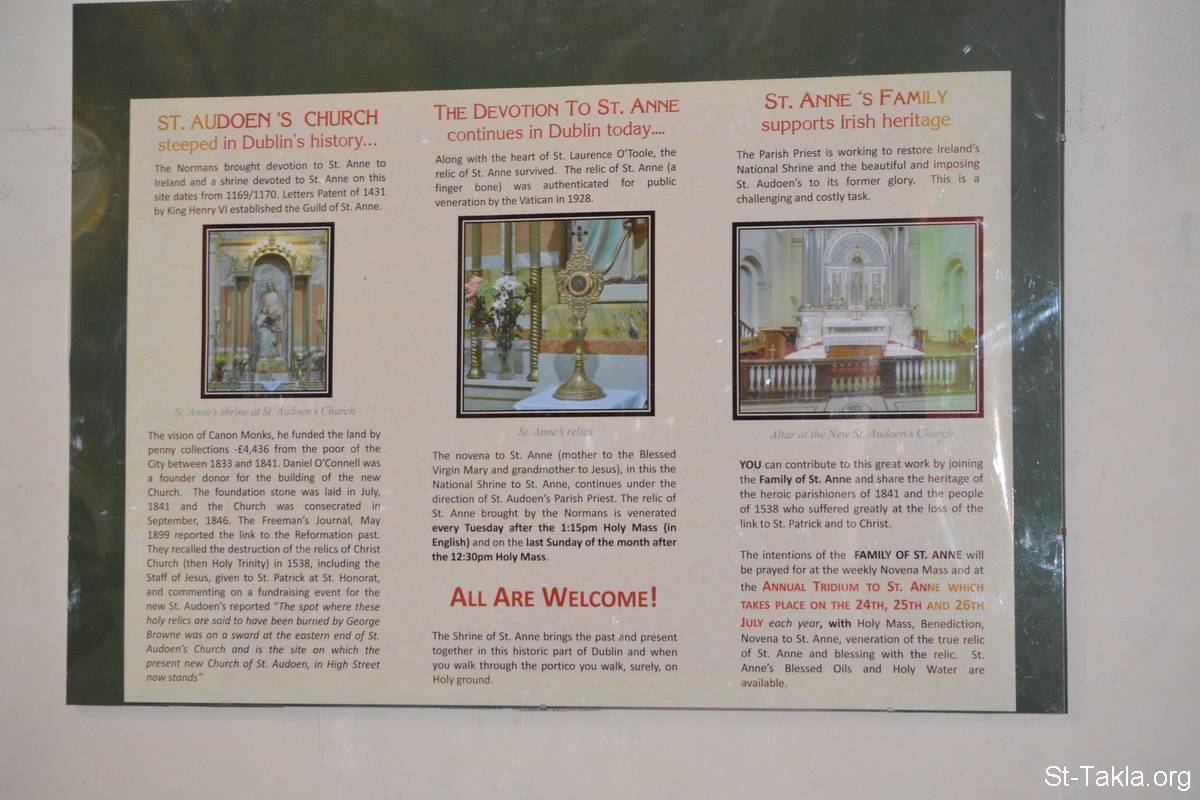 ST. AUDOEN 'S CHURCH
steeped in Dublin's history...
The Normans brought devotion to St. Anne to
Ireland and a shrine devoted to St. Anne on this
site dates from 1169/1170. Letters Patent of 1431
by King Henry VI established the Guild of St. Anne.
St. Anne's shrine at St. Audoen's Church
The vision of Canon Monks, he funded the land by
penny collections -£4,436 from the poor of the
City between 1833 and 1841. Daniel O'Connell was
a founder donor for the building of the new
Church. The foundation stone was laid in July,
1841 and the Church was consecrated in
September, 1846. The Freeman's Journal, May
1899 reported the link to the Reformation past.
They recalled the destruction of the relics of Christ
Church (then Holy Trinity) in 1538, including the
Staff of Jesus, given to St. Patrick at St. Honorat,
and commenting on a fundraising event for the
new St. Audoen's reported "The spot where these
holy relics are said to have been burned by George
Browne was on a sward at the eastern end of St.
Audoen's Church and is the site on which the
present new Church of St. Audoen, in High Street
now stands"
THE DEVOTION TO ST. ANNE
continues in Dublin today....
Along with the heart of St. Laurence O'Toole, the
relic of St. Anne survived. The relic of St. Anne (a
finger bone) was authenticated for public
veneration by the Vatican in 1928.
St. Anne's relics
The novena to St. Anne (mother to the Blessed
Virgin Mary and grandmother to Jesus), in this the
National Shrine to St. Anne, continues under the
direction of St. Audoen's Parish Priest. The relic of
St. Anne brought by the Normans is venerated
every Tuesday after the 1:15pm Holy Mass (in
English) and on the last Sunday of the month after
the 12:30pm Holy Mass.
ALL ARE WELCOME!
The Shrine of St. Anne brings the past and present
together in this historic part of Dublin and when
you walk through the portico you walk, surely, on
Holy ground.
ST. ANNE 'S FAMILY
supports Irish heritage
The Parish Priest is working to restore Ireland's
National Shrine and the beautiful and imposing
St. Audoen's to its former glory. This is a
challenging and costly task.
Altar at the New St. Audoen's Church
YOU can contribute to this great work by joining
the Family of St. Anne and share the heritage of
the heroic parishioners of 1841 and the people
of 1538 who suffered greatly at the loss of the
link to St. Patrick and to Christ.
The intentions of the FAMILY OF ST. ANNE will
be prayed for at the weekly Novena Mass and at
the ANNUAL TRIDIUM TO ST. ANNE WHICH
TAKES PLACE ON THE 24TH, 25TH AND 26TH
JULY each year, with Holy Mass, Benediction,
Novena to St. Anne, veneration of the true relic
of St. Anne and blessing with the relic. St.
Anne's Blessed Oils and Holy Water are
available.
St-Takla.org